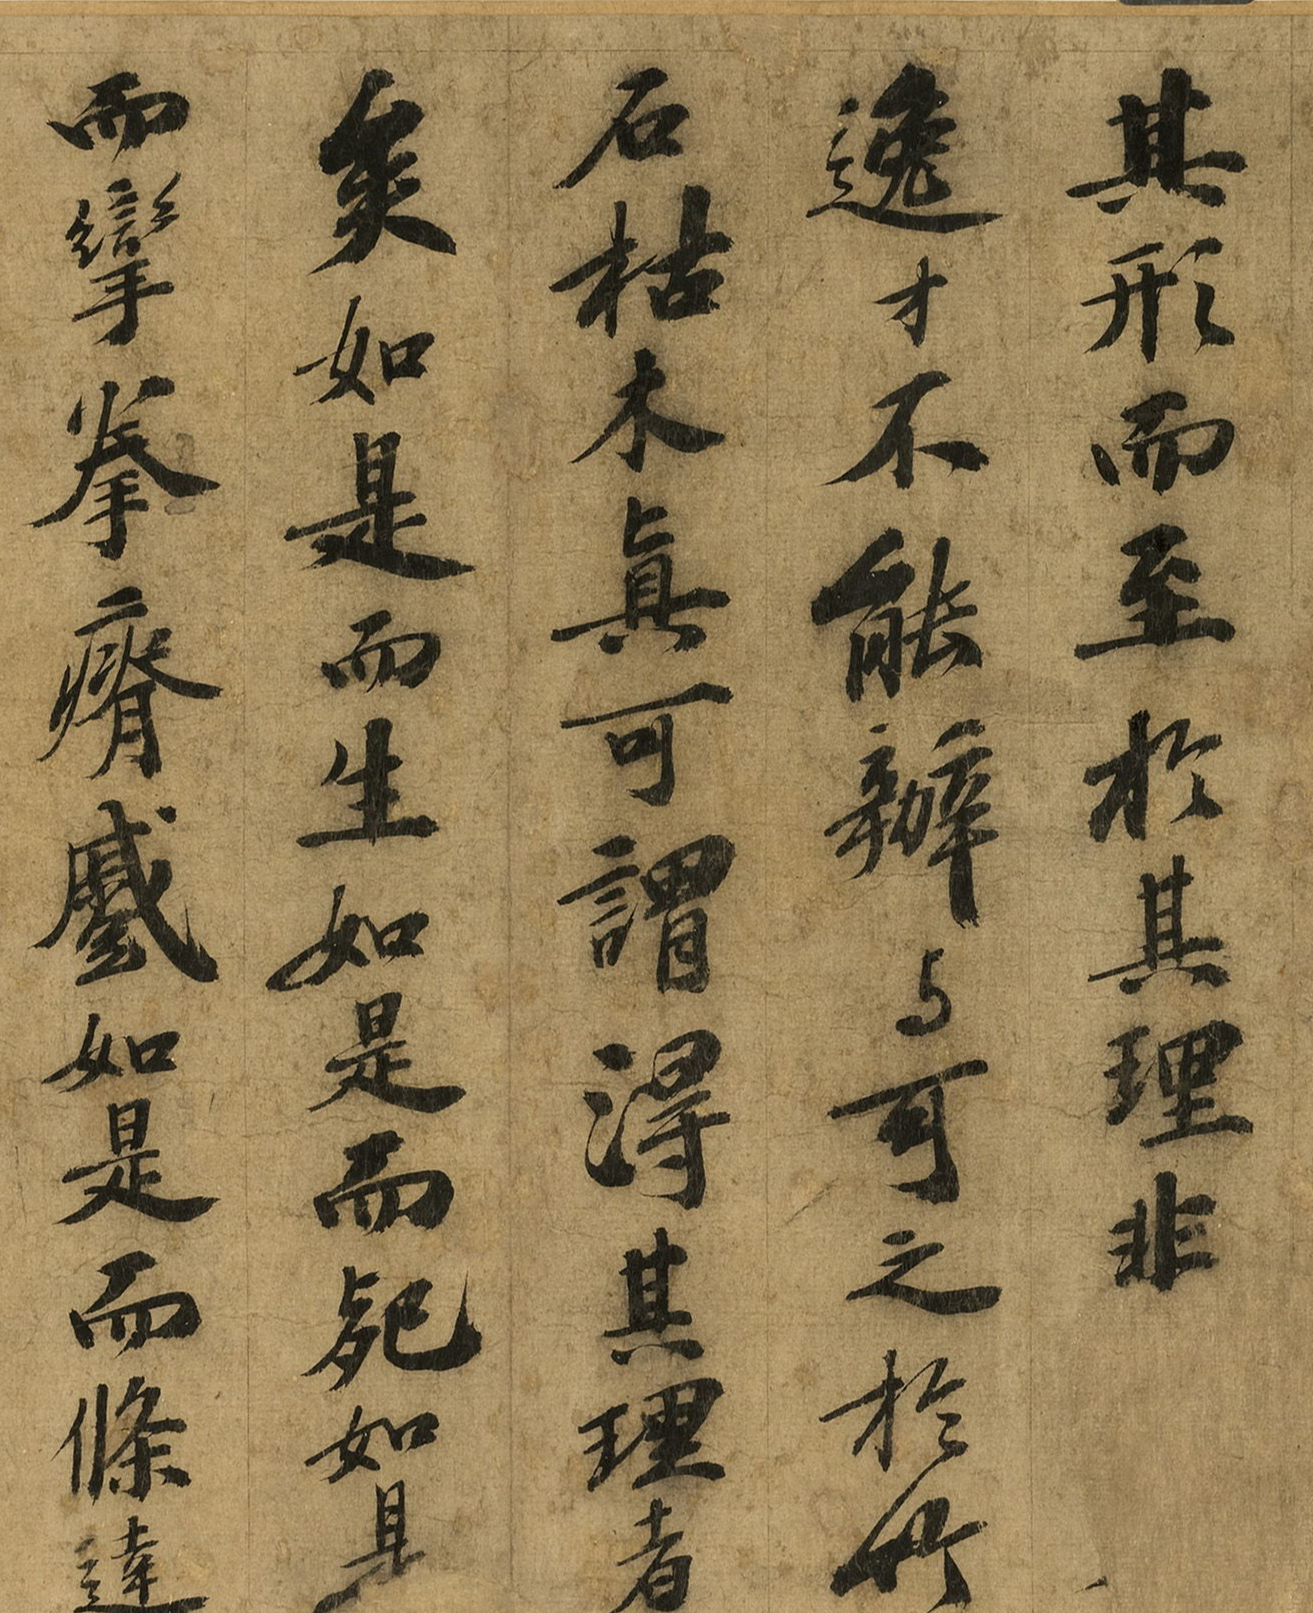 其形而至於其理非
逸才不能辦与可之於竹
石枯木真可謂淂其理者
矣如是而生如是而死如是
而攣拳瘠蹙如是而條達